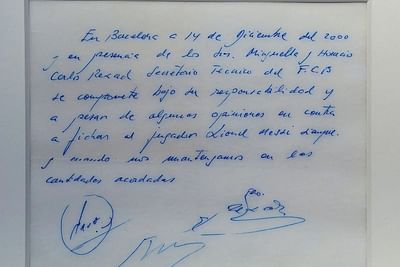 En Barcelona a 14 de Diciembre del 2000
y en presencia de los srs. Minguella y Horacio
Carlo Rexach Secretario Tecnico del F.C.B
se compromete bajo su responsabilidad y
a pesar de algunas opiniones en contra
a fichar al jugador Lionel Messi siempre
y cuando nos mantengamos en las
cantidades acordadas